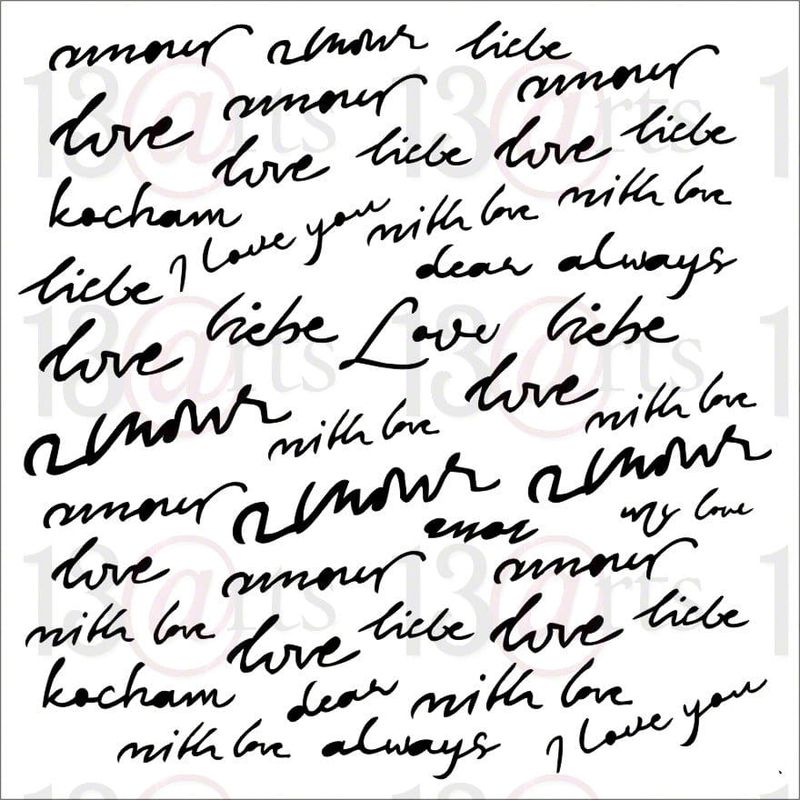 amour amour liebe
love amour amour
love liebe love liebe
kocham I love you with love with love
liebe dear always
love liebe Love liebe
amour with love love with love
amour amour amour
amor my love
love amour amour
with love love liebe love liebe
kocham dear with love
with love always I love you
13@rts 13@rts 1
13@rts 13@rts 1
13@rts 13@rts 1